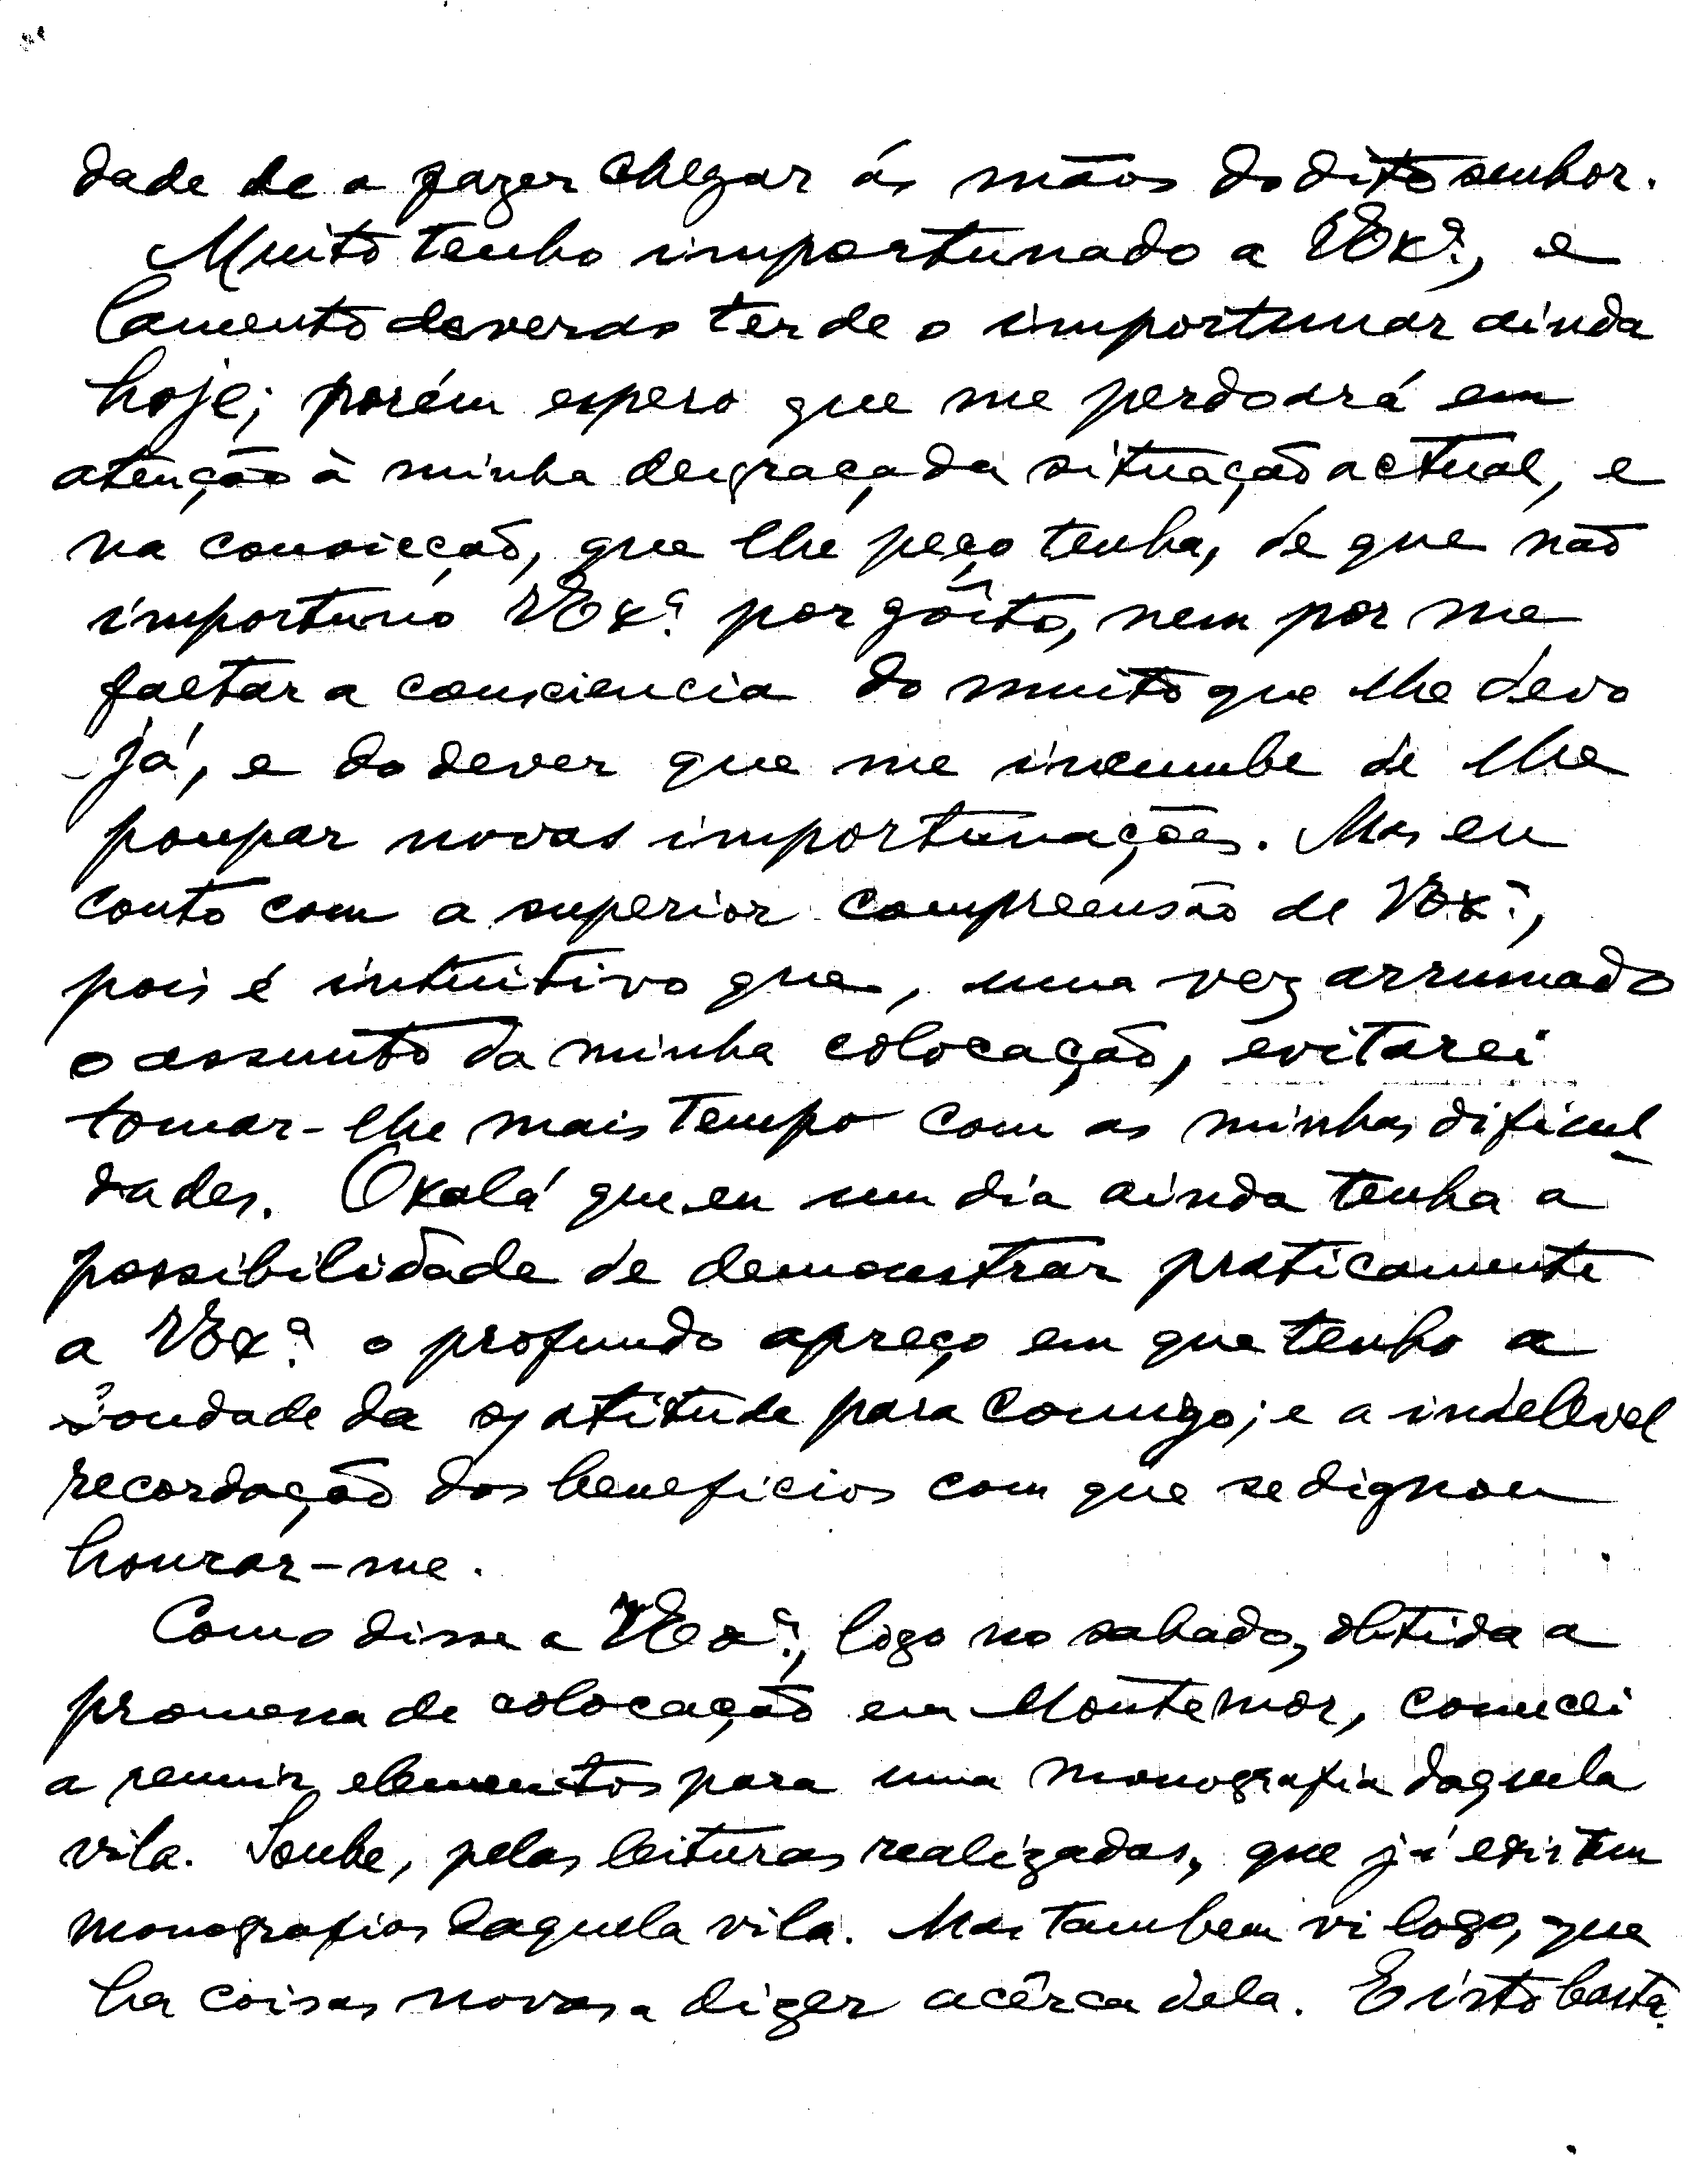 dade de a fazer chegar ás mãos do dito senhor.
Muito tenho importunado a VExª, e
lamento deveras ter de o importunar ainda
hoje; porém espero que me perdoará em
atenção à minha desgraçada situação actual, e
na convicção, que lhe peço tenha, de que não
importuno VExª por gôsto, nem por me
faltar a consciencia do muito que lhe devo
já, e do dever que me incumbe de lhe
poupar novas importunações. Mas eu
conto com a superior compreensão de VExª,
pois é intuitivo que, uma vez arrumado
o assunto da minha colocação, evitarei
tomar-lhe mais tempo com as minhas dificul
dades. Oxalá que eu um dia ainda tenha a
possibilidade de demonstrar praticamente
a VExª o profundo apreço em que tenho a
bondade da s/ atitude para comigo; e a indelevel
recordação dos beneficios com que se dignou
honrar-me.
Como disse a VExª, logo no sabado, obtida a
promessa de colocação em Montemor, comecei
a reunir elementos para uma monografia daquela
vila. Soube, pelas leituras realizadas, que já existem
monografias daquela vila. Mas tambem vi logo, que
ha coisas novas a dizer acêrca dela. E isto basta.